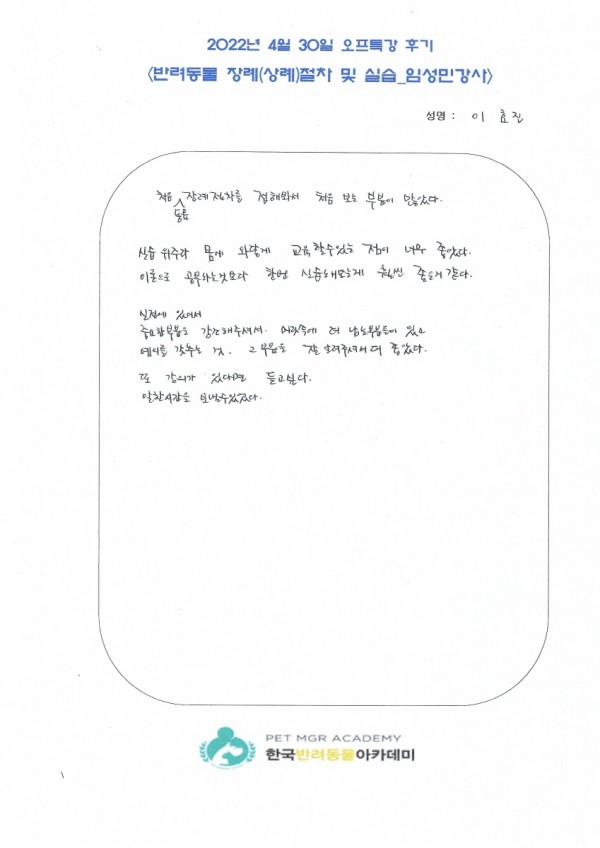 2022년 4월 30일 오프특강 후기
<반려동물 장례(상례)절차 및 실습_임성민강사>
성명 : 이효진
처음 동물 장례절차를 접해봐서 처음 보는 부분이 많았다.
실습 위주라 몸에 와닿게 교육할수있는 점이 너무 좋았다.
이론으로 공부하는것보다 한번 실습해보는게 훨씬 좋은거 같다.
실전에 있어서
중요한부분을 강조해주셔서. 머릿속에 더 남는부분들이 있고
예의를 갖추는 것. 그 부분을 잘 알려주셔서 더 좋았다.
또 강의가 있다면 듣고싶다.
알찬시간을 보낼수있었다.
PET MGR ACADEMY
한국반려동물아카데미